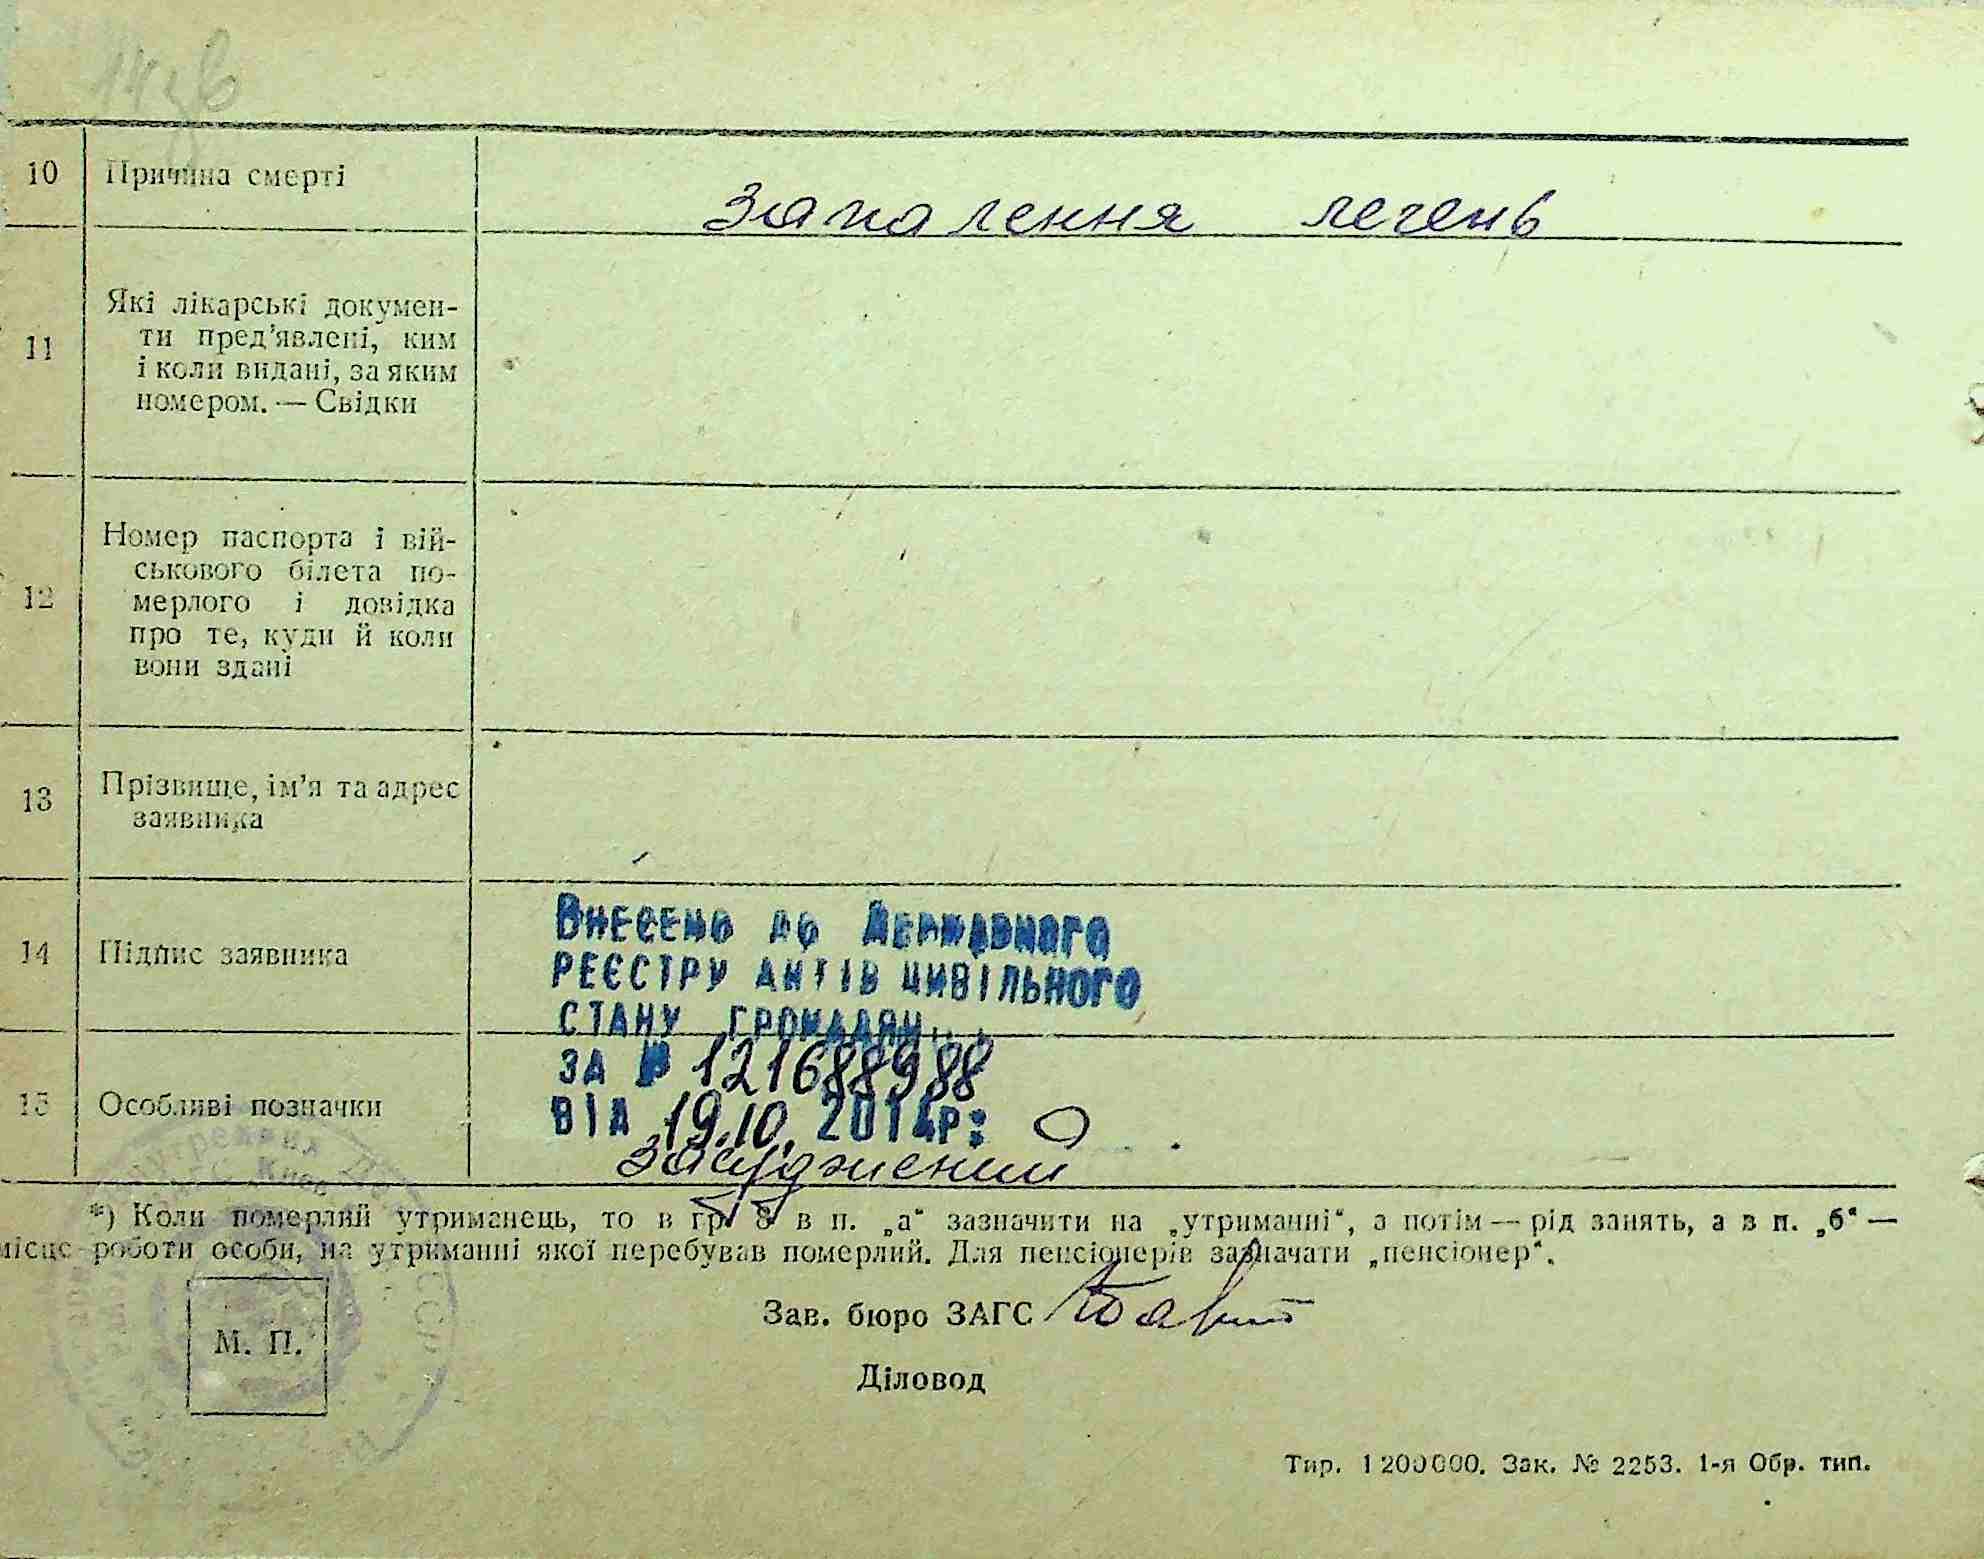 10 Причина смерті
запалення легень
11 Які лікарські докумен-
ти пред’явлені, ким
і коли видані, за яким
номером. — Свідки
12 Номер паспорта і вій-
ськового білета по-
мерлого і довідка
про те, куди й коли
вони здані
13 Прізвище, ім’я та адрес
заявника
14 Підпис заявника
ВНЕСЕНО ДО ДЕРЖАВНОГО
РЕЄСТРУ АКТІВ ЦИВІЛЬНОГО
СТАНУ ГРОМАДЯН
ЗА № 121688988
ВІД 19.10. 2014Р:
15 Особливі позначки
засуджений
*) Коли померлий утриманець, то в гр. 8 в п. „а“ зазначити на „утриманні“, а потім — рід занять, а в п. „б“ —
місце роботи особи, на утриманні якої перебував померлий. Для пенсіонерів зазначати „пенсіонер“.
Зав. бюро ЗАГС
М. П.
Діловод
Тир. 1200000. Зак. № 2253. 1-я Обр. тип.